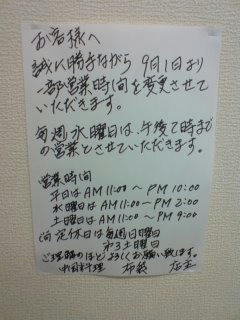 お客様へ
誠に勝手ながら 9月1日より
一部営業時間を変更させて
いただきます。
毎週水曜日は、午後2時まで
の営業とさせていただきます。
営業時間
平日は AM 11:00 〜 PM 10:00
水曜日は AM 11:00 〜 PM 2:00
土曜日は AM 11:00 〜 PM 9:00
尚 定休日は毎週日曜日
第3土曜日
ご理解のほどよろしくお願い致します。
中国料理 布袋 店主